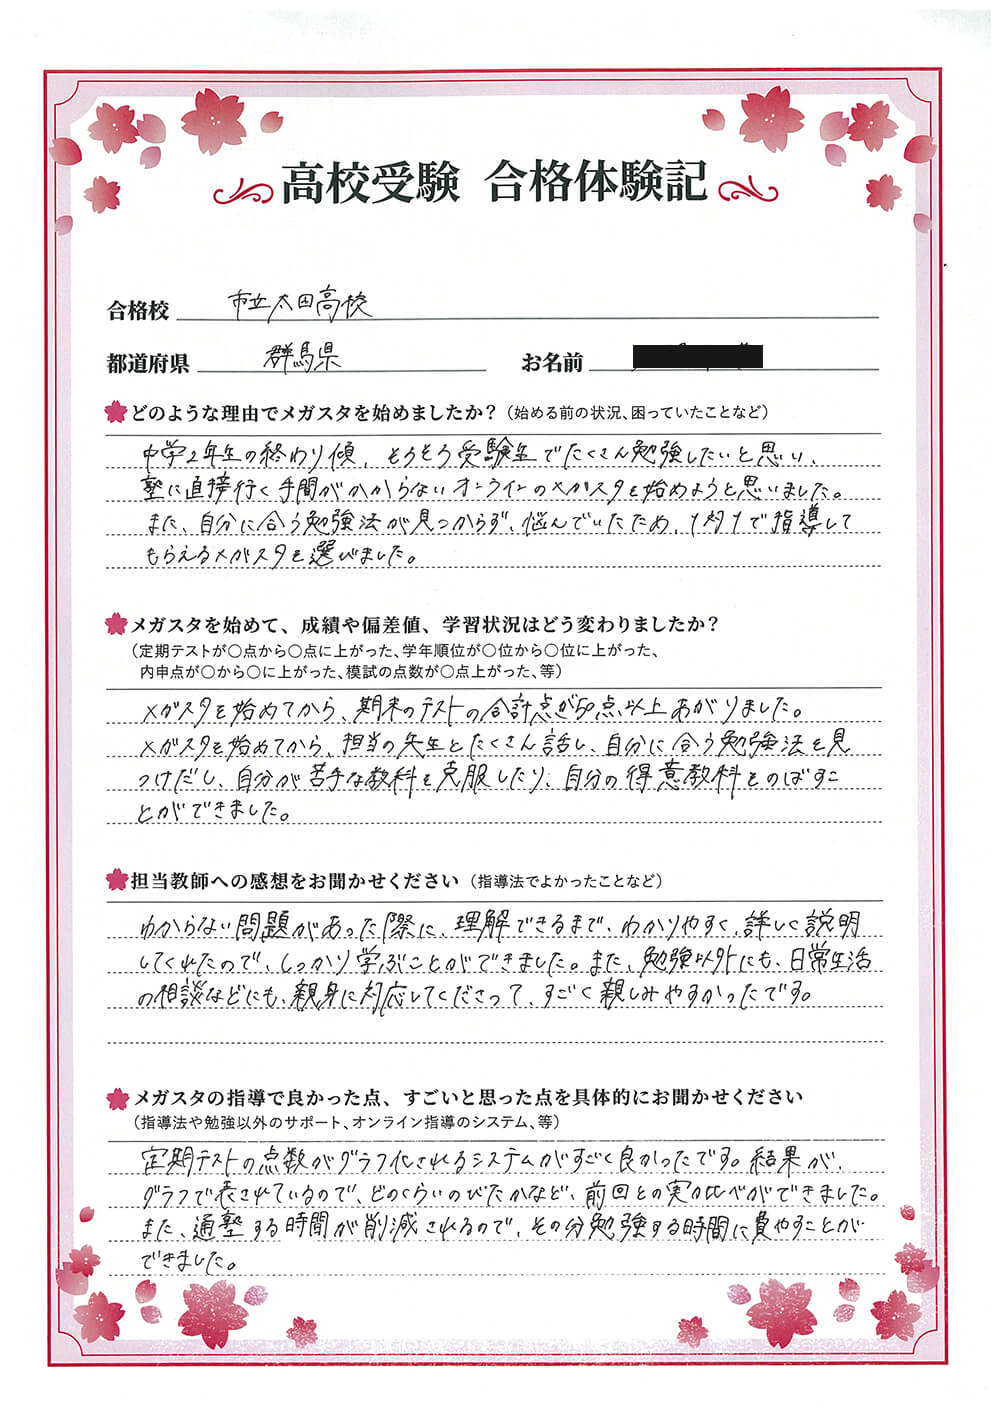 高校受験 合格体験記
合格校 市立太田高校
都道府県 群馬県 お名前
どのような理由でメガスタを始めましたか？（始める前の状況、困っていたことなど）
中学2年生の終わり頃、そろそろ受験生でたくさん勉強したいと思い、
塾に直接行く手間がかからないオンラインのメガスタを始めようと思いました。
また、自分に合う勉強法が見つからず、悩んでいたため、1対1で指導して
もらえるメガスタを選びました。
メガスタを始めて、成績や偏差値、学習状況はどう変わりましたか？
（定期テストが〇点から〇点に上がった、学年順位が〇位から〇位に上がった、
内申点が〇から〇に上がった、模試の点数が〇点上がった、等）
メガスタを始めてから、期末のテストの合計点が50点以上あがりました。
メガスタを始めてから、担当の先生とたくさん話し、自分に合う勉強法を見
つけだし、自分が苦手な教科を克服したり、自分の得意教科をのばすこ
とができました。
担当教師への感想をお聞かせください（指導法でよかったことなど）
わからない問題があった際に、理解できるまで、わかりやすく、詳しく説明
してくれたので、しっかり学ぶことができました。また、勉強以外にも、日常生活
の相談などにも、親身に対応してくださって、すごく親しみやすかったです。
メガスタの指導で良かった点、すごいと思った点を具体的にお聞かせください
（指導法や勉強以外のサポート、オンライン指導のシステム、等）
定期テストの点数がグラフ化されるシステムがすごく良かったです。結果が、
グラフで表されているので、どのくらいのびたかなど、前回との実力比べができました。
また、通塾する時間が削減されるので、その分勉強する時間に費やすことが
できました。